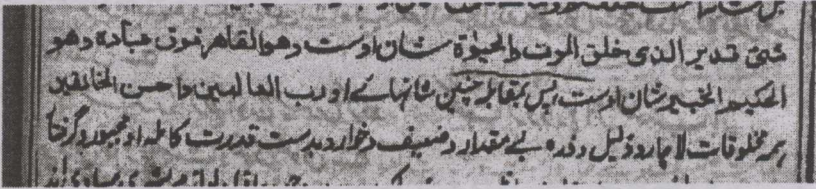 شئ قدير الذى خلق الموت والحيوٰة شان اوست وهو القاهر فوق عباده وهو
الحكيم الخبير شان اوست پس بمقابلہ چنین شانہائے او رب العالمین و احسن الخالقین
ہمہ مخلوقات لاچار و ذلیل و ذرہ بے مقدار و ضعیف و خوار و بدست قدرت کاملہ او مجبور و گرفتا